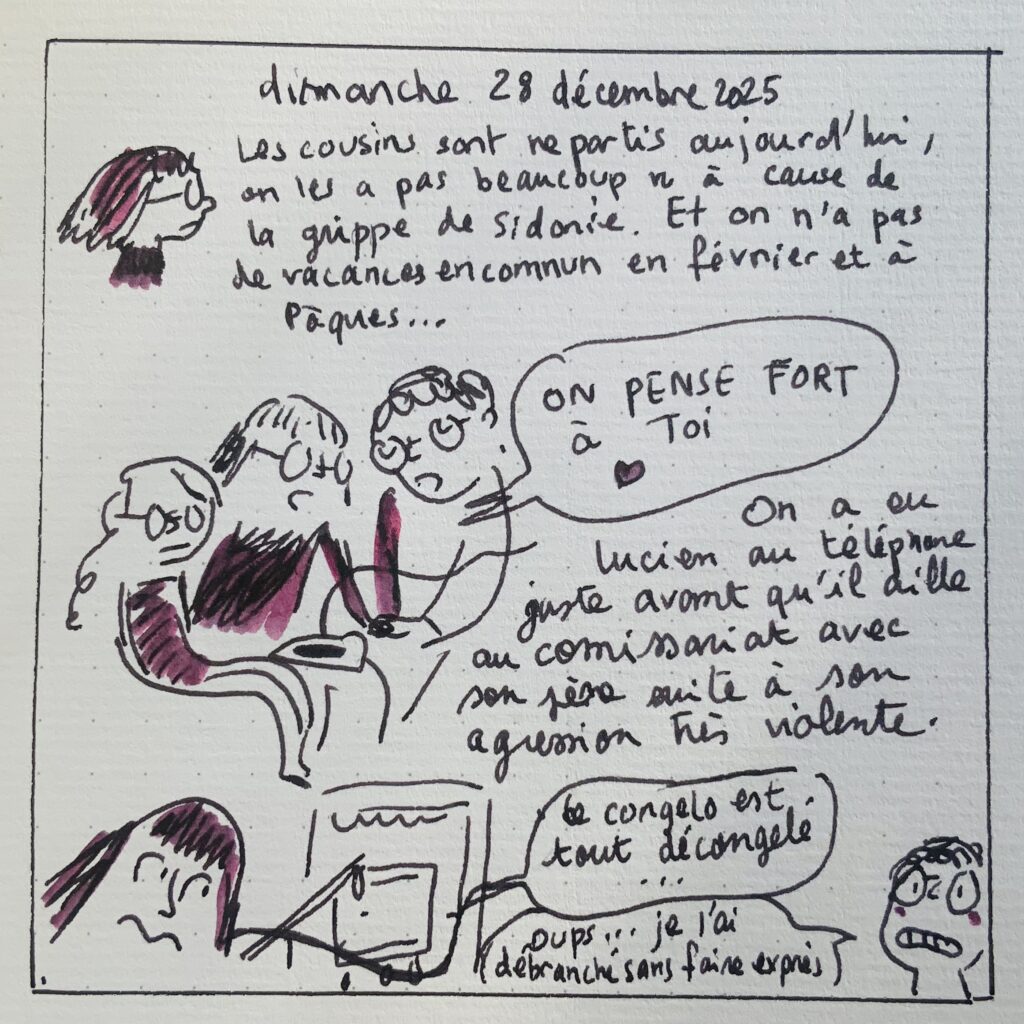 dimanche 28 décembre 2025
Les cousins sont repartis aujourd'hui,
on les a pas beaucoup à cause de
la grippe de Sidonie. Et on n'a pas
de vacances en commun en février et à
Pâques...
ON PENSE FORT
à TOI
On a eu
Lucien au téléphone
juste avant qu'il aille
au comissariat avec
son père suite à son
agression très violente.
Le congelo est
tout décongelé
...
oups... je l'ai
débranché sans faire exprès